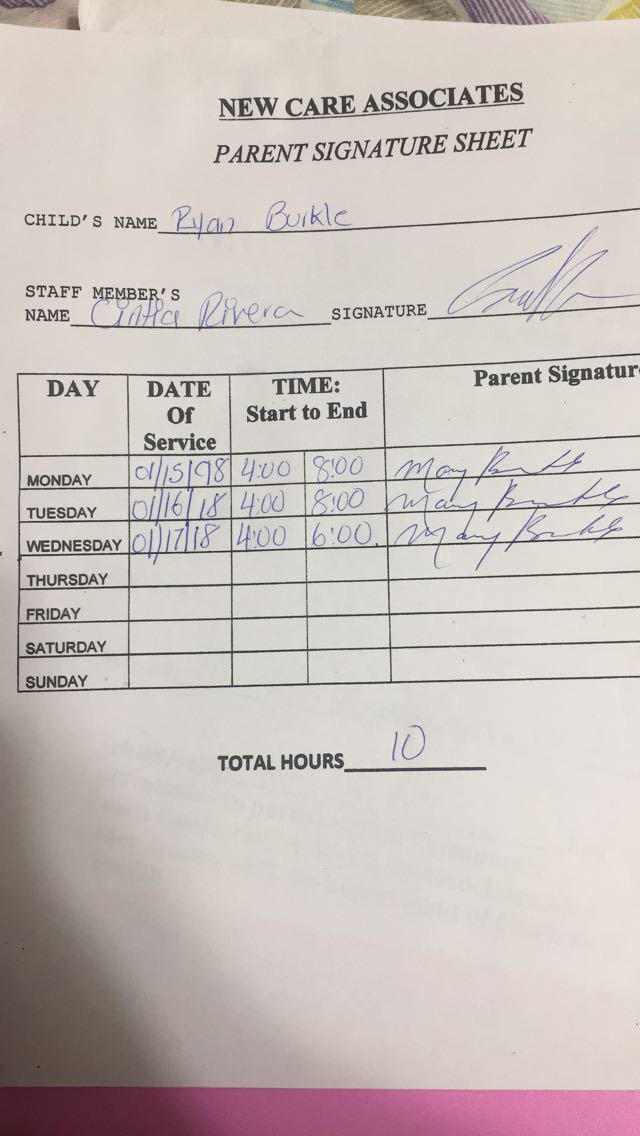 NEW CARE ASSOCIATES
PARENT SIGNATURE SHEET
CHILD'S NAME Ryan Burkle
STAFF MEMBER'S
NAME Cintia Rivera SIGNATURE
DAY DATE Of Service TIME: Start to End Parent Signatur
MONDAY 01/15/98 4:00 8:00 Mary Burkle
TUESDAY 01/16/18 4:00 8:00 Mary Burkle
WEDNESDAY 01/17/18 4:00 6:00 Mary Burkle
THURSDAY
FRIDAY
SATURDAY
SUNDAY
TOTAL HOURS 10